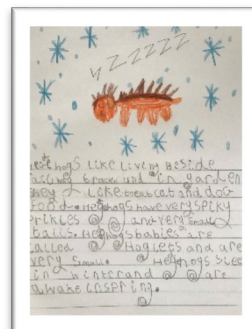 ZZZZZZ
hogs Like Living Beside
railway tracks and in garden
they Like bread cat and dog
food. Hedghogs have very spiky
prikles and very small
tails. Hedghogs babies are
called Hoglets and are
very Small. Hedghogs Slee
in winter and are
awake inspring.